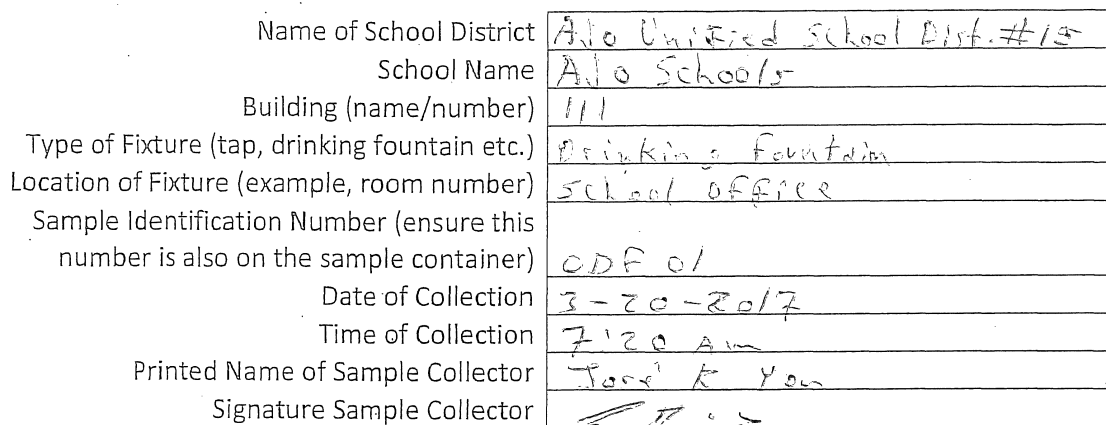 Name of School District Ajo Unified School Dist. #15
School Name Ajo Schools
Building (name/number) 111
Type of Fixture (tap, drinking fountain etc.) Drinking fountain
Location of Fixture (example, room number) school office
Sample Identification Number (ensure this
number is also on the sample container) ODF 01
Date of Collection 3-20-2017
Time of Collection 7:20 Am
Printed Name of Sample Collector
Signature Sample Collector